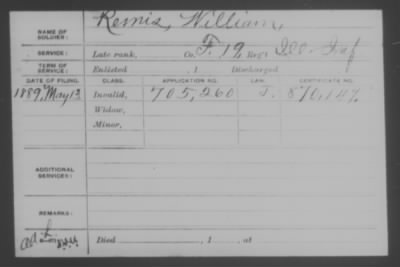 NAME OF SOLDIER: Remis, William,
SERVICE: Late rank, Co. F, 12, Reg't Ill. Inf
TERM OF SERVICE: Enlisted , 1 Discharged
DATE OF FILING. CLASS. APPLICATION NO. LAW. CERTIFICATE NO.
1889, May 13 Invalid, 705,260 J.
Widow,
Minor,
ADDITIONAL SERVICES:
REMARKS:
Died , 1 , at